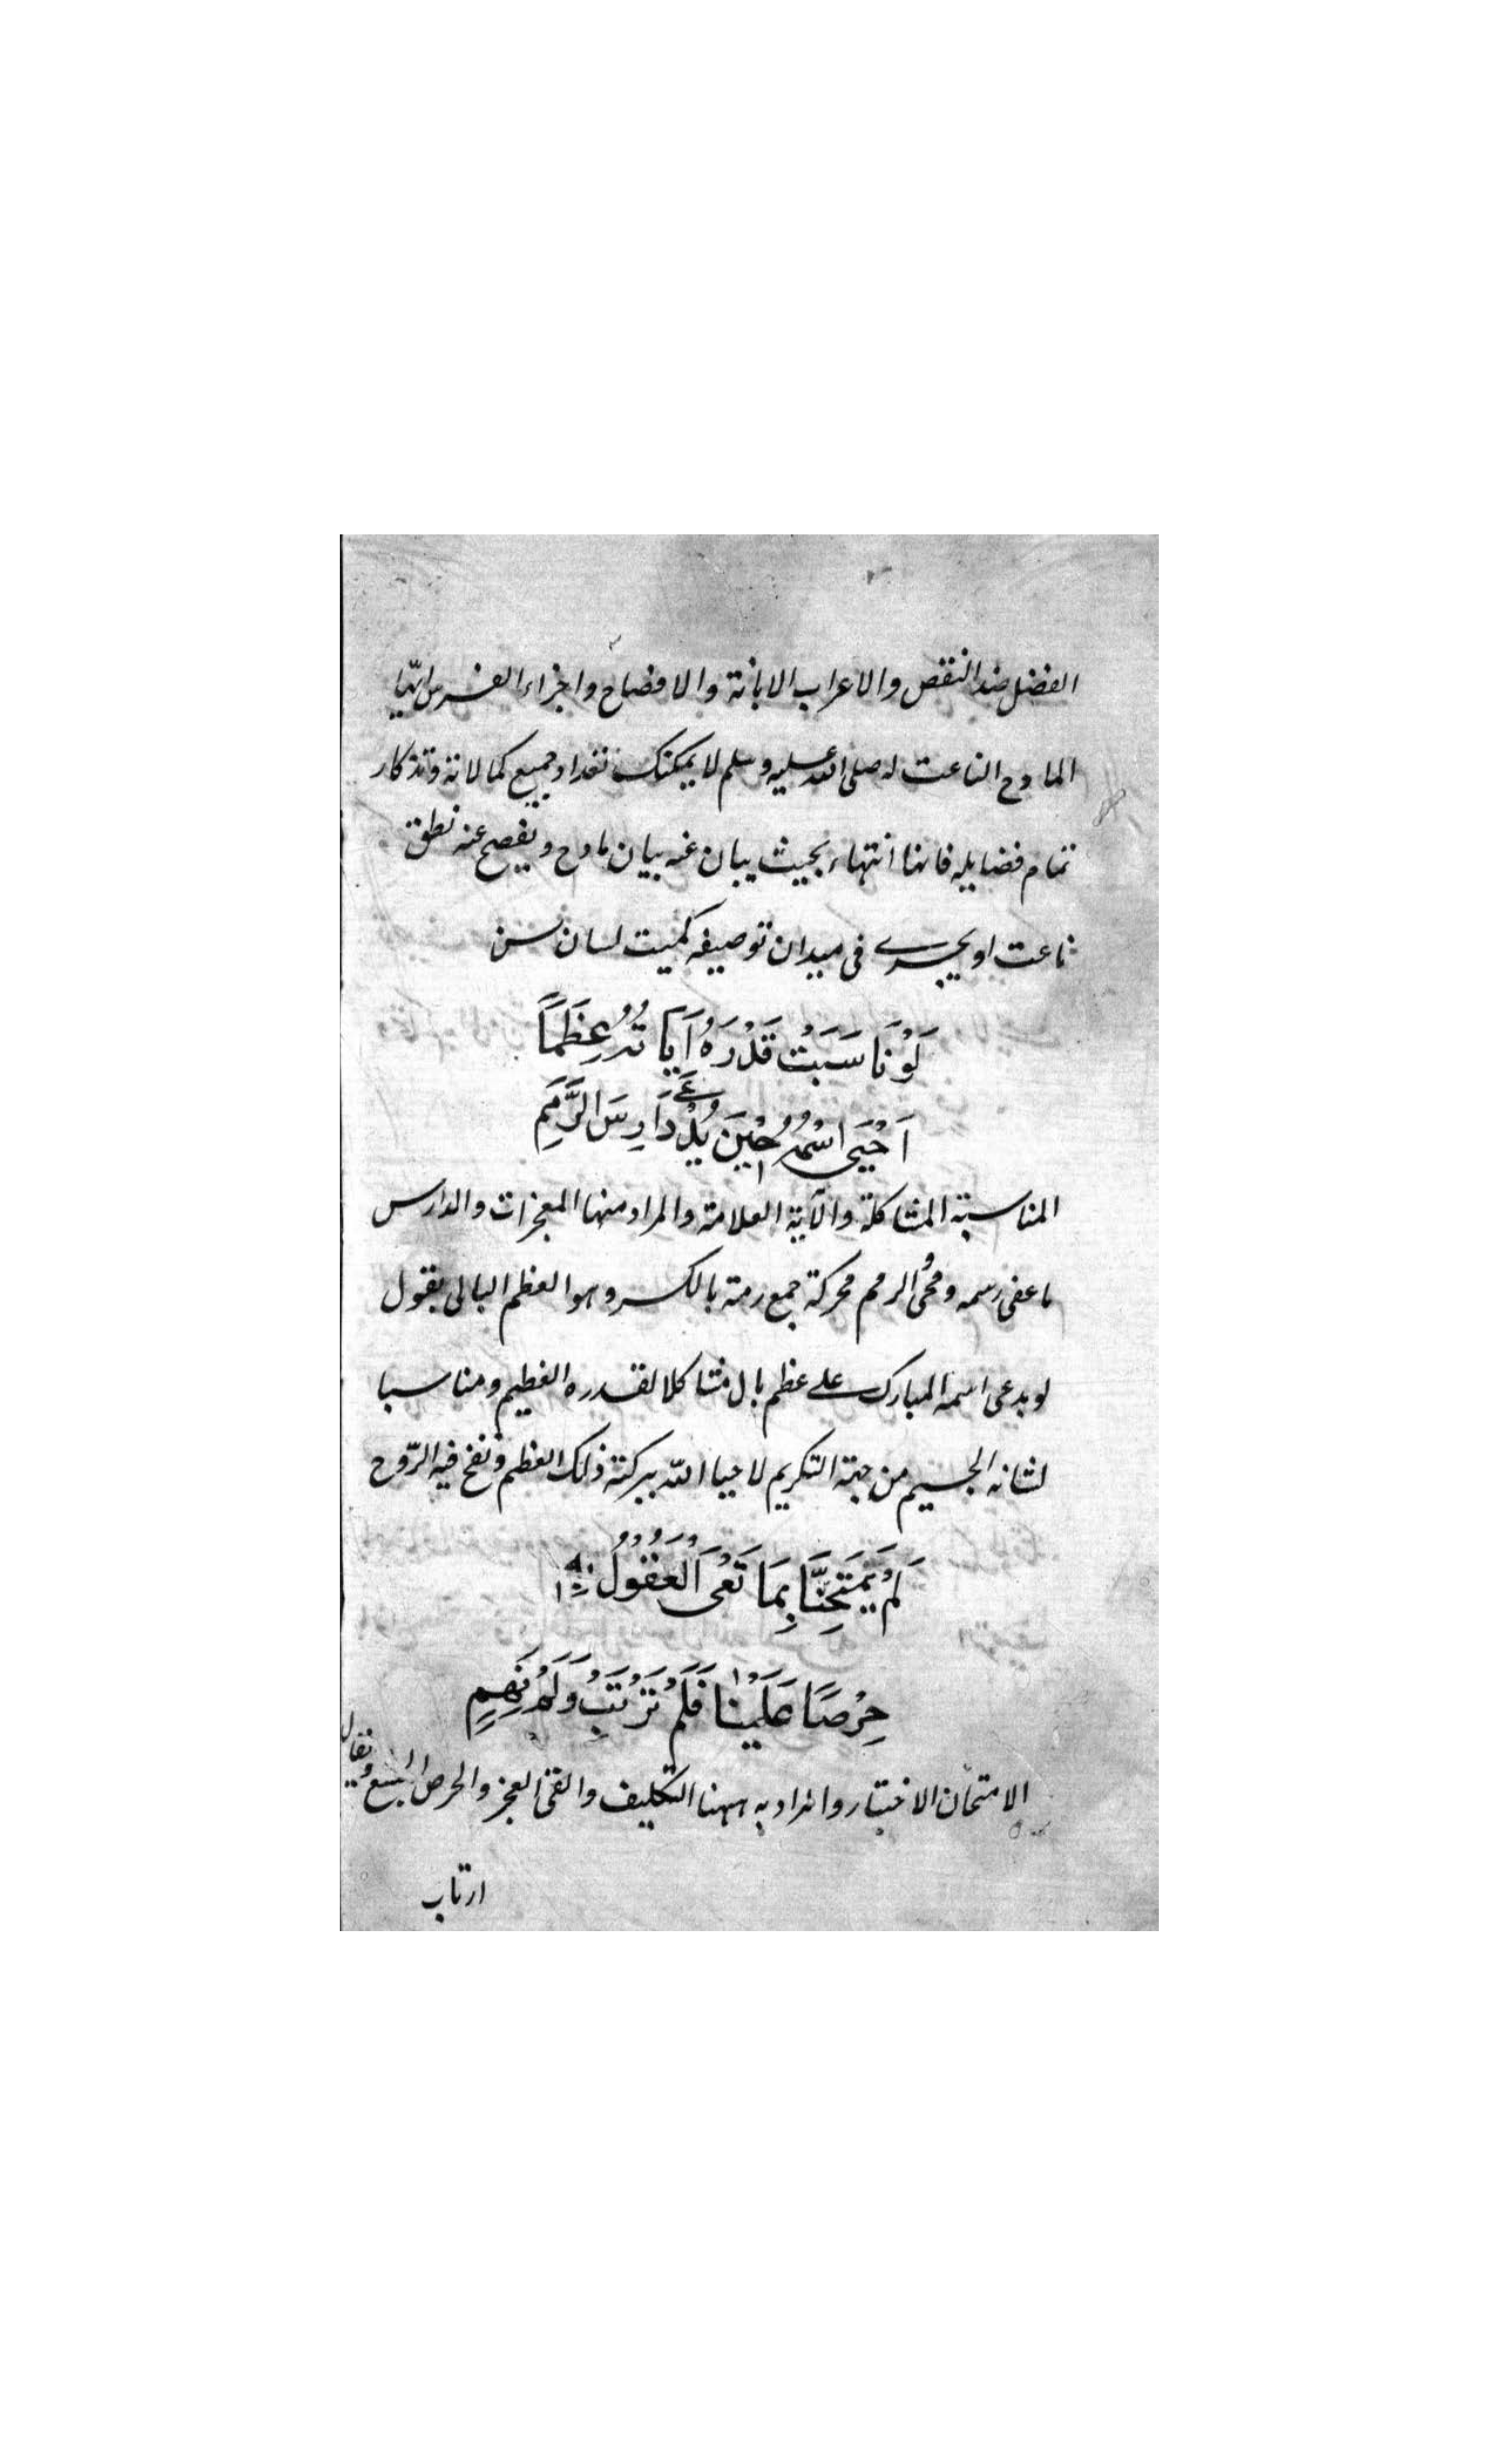 الفضل ضد النقص والاعراب الابانة والافصاح واجراء الفرس ايها
المادح الناعت له صلى الله عليه وسلم لا يمكنك تعداد جميع كمالاته وتذكار
تمام فضايله فانها انتهاء بحيث يبان عنه بيان مادح ويفصح عنه نطق
ناعت او يجرے فى ميدان توصيفه كميت لسان لسن
لَوْ نَاسَبَتْ قَدْرَهُ آيَاتُهُ عِظَمًا
اَحْيَى اسْمُهُ حِيْنَ يُدْعَى دَارِسَ الرِّمَمِ
المناسبة المشاكلة والآية العلامة والمراد منها المعجزات والدارس
ما عفى رسمه ومُحى الرمم محركة جمع رمة بالكسر وهو العظم البالى يقول
لو يدعى اسمه المبارك على عظم بال مشاكلا لقدره العظيم ومناسبا
لشانه الجسيم من جهة التكريم لاحيا الله ببركته ذلك العظم ونفخ فيه الرّوح
لَمْ يَمْتَحِنَّا بِمَا تَعْىَ الْعُقُولُ بِهٖ
حِرْصًا عَلَيْنَا فَلَمْ نَرْتَبْ وَلَمْ نَهِمِ
الامتحان الاختبار والمراد به ههنا التكليف والعى العجز والحرص ويقال
ارتاب